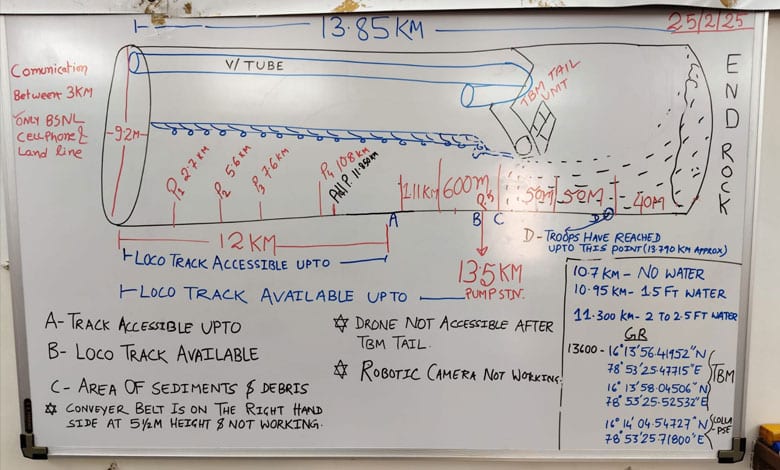 13.85 KM
25/2/25
Comunication
Between 3KM
ONLY BSNL
CELLPHONE &
Land line
V/ TUBE
TBM TAIL
UNIT
END ROCK
9.2M
P1 2.7 KM
P2 5.6 KM
P3 7.6 KM
P4 10.8 KM
Adl. P. 11.950 KM
1.11 KM
600m
P5
50M
50M
40M
A
B
C
D
12 KM
LOCO TRACK ACCESSIBLE UPTO
LOCO TRACK AVAILABLE UPTO
13.5 KM
PUMP STN.
D - TROOPS HAVE REACHED
UPTO THIS POINT (13.790 KM APPROX)
A- TRACK ACCESSIBLE UPTO
B- LOCO TRACK AVAILABLE
C- AREA OF SEDIMENTS & DEBRIS
CONVEYER BELT IS ON THE RIGHT HAND
SIDE AT 5½M HEIGHT & NOT WORKING.
DRONE NOT ACCESSIBLE AFTER
TBM TAIL.
ROBOTIC CAMERA NOT WORKING.
10.7 KM - NO WATER
10.95 KM - 1.5 FT WATER
11.300 KM - 2 TO 2.5 FT WATER
GR
13600 - 16° 13' 56.41952" N
78° 53' 25.47715" E
16° 13' 58.04506" N
78° 53' 25.52532" E
TBM
16° 14' 04.54727" N
78° 53' 25.71800" E
COLLA
PSE